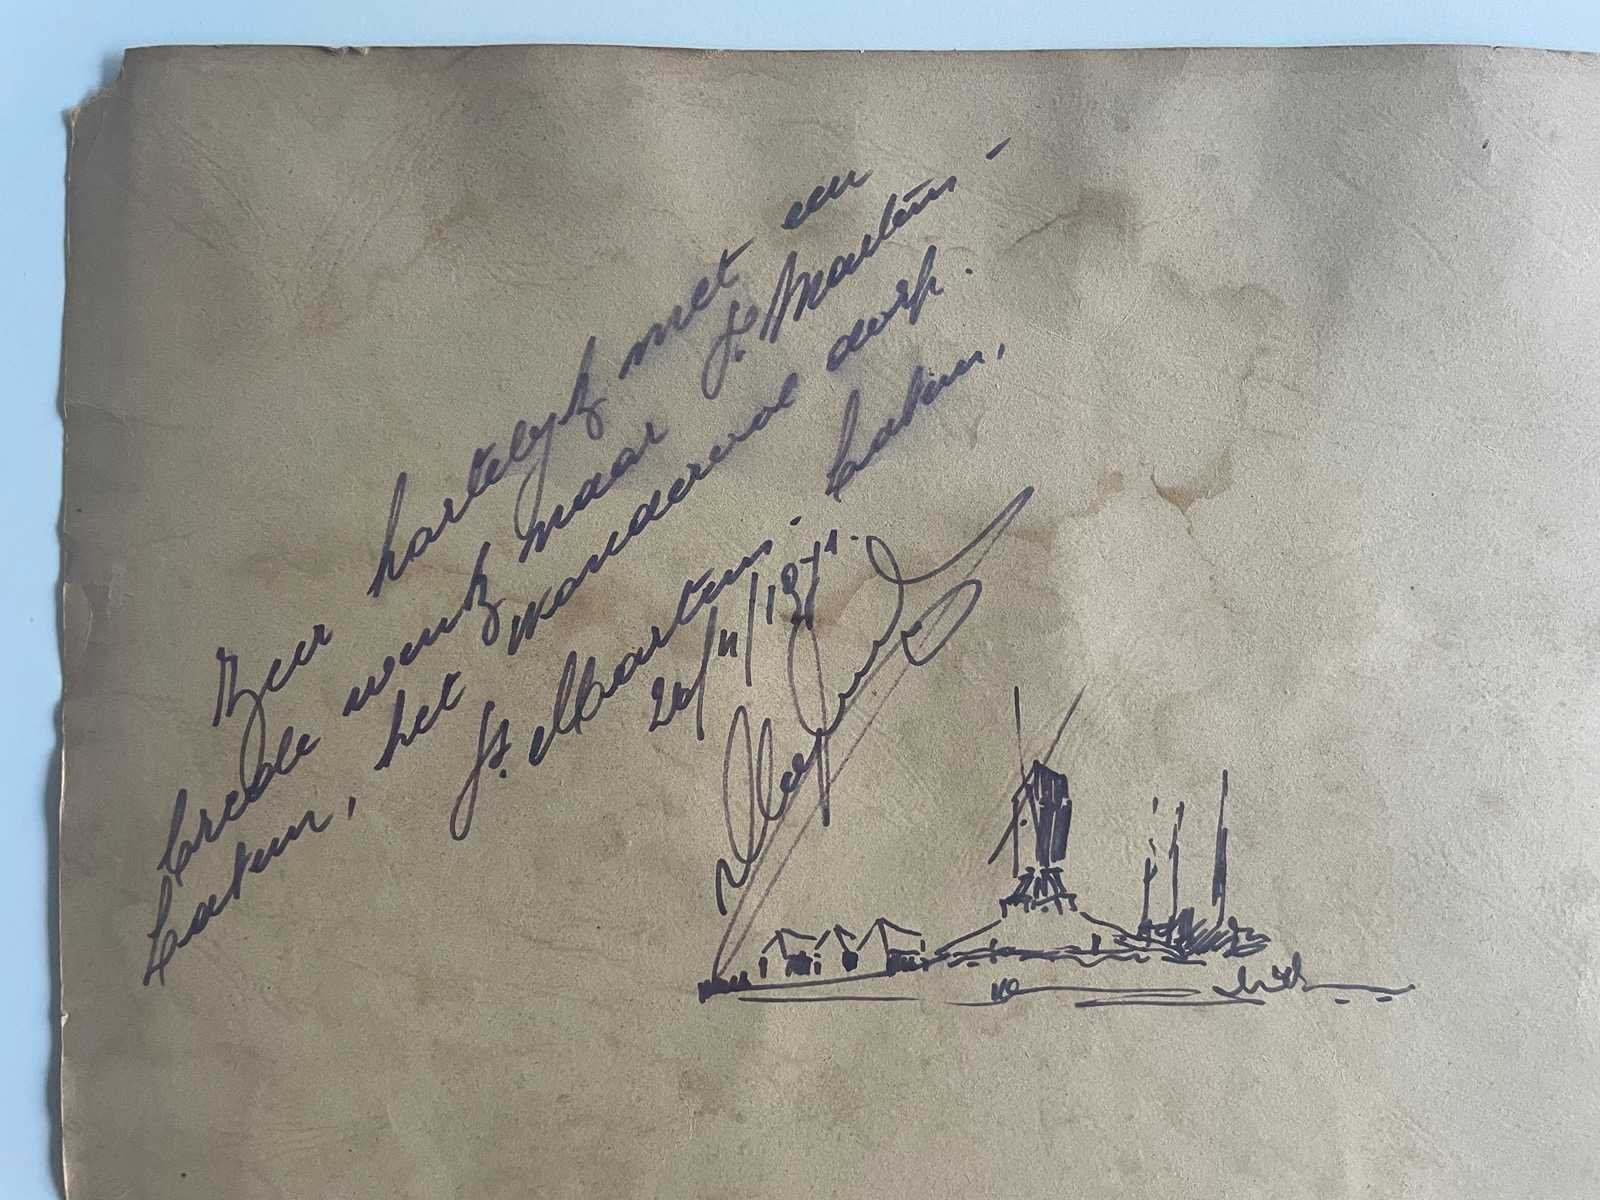 Zeer hartelyk met een
brede wenk naar St. Martens-
Latem, het wondervol dorp.
St. Martens-Latem,
20/11/1971.